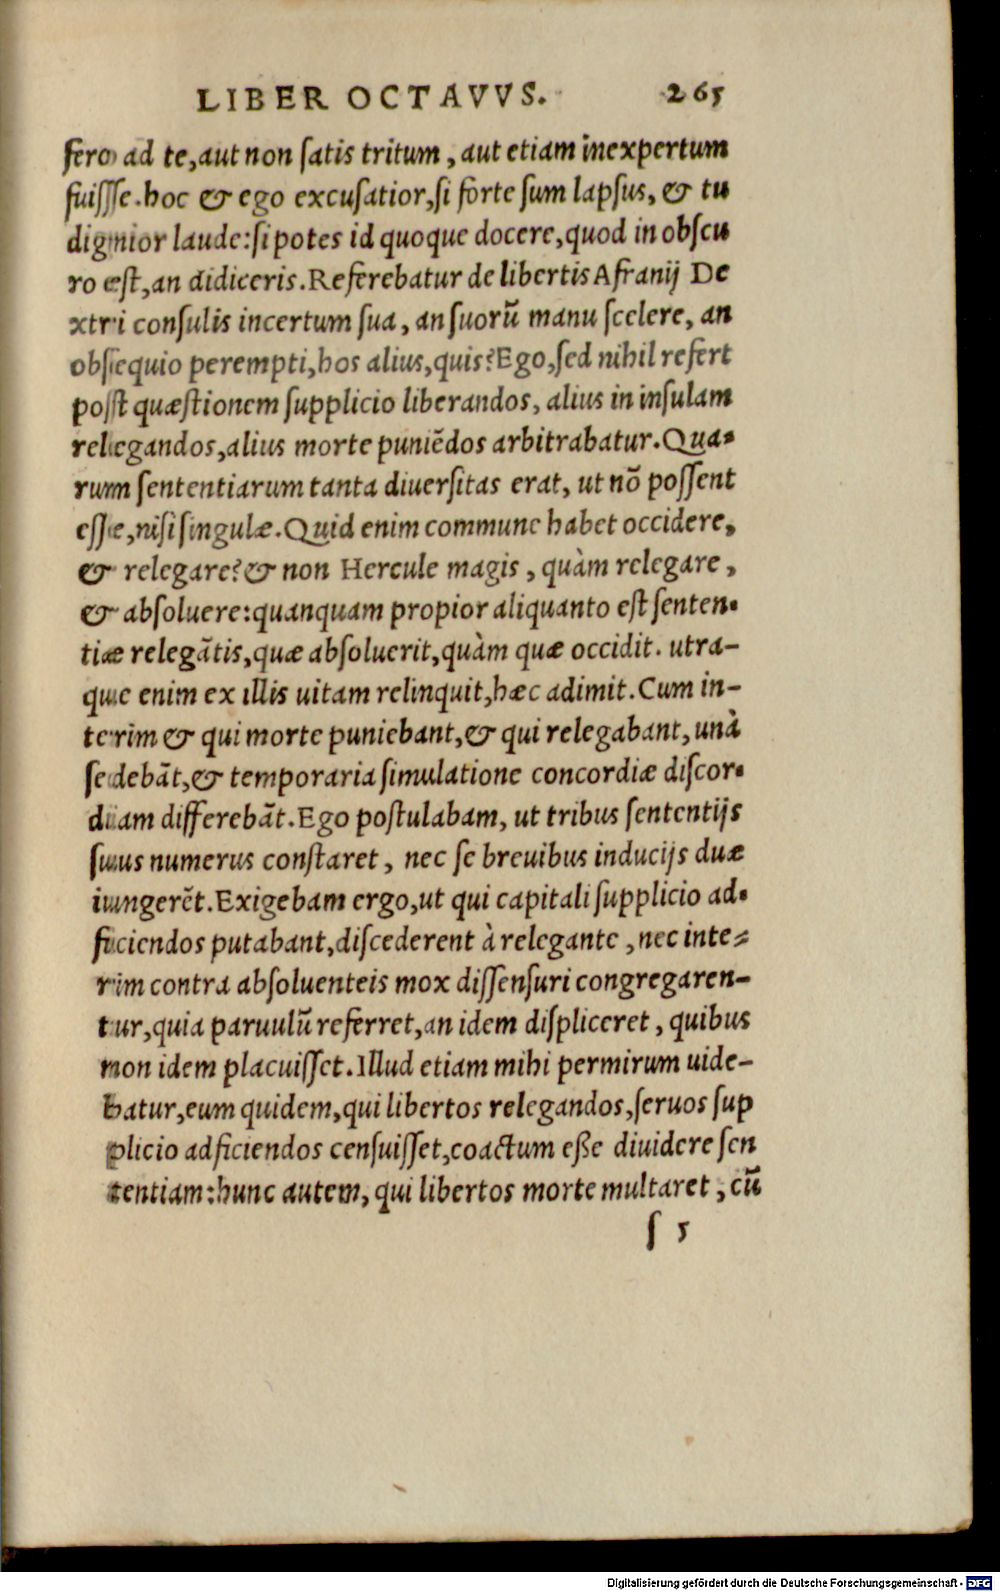 LIBER OCTAVVS. 265
fero ad te,aut non ſatis tritum, aut etiam inexpertum
fuiſſe.hoc & ego excuſatior,ſi forte ſum lapſus, & tu
dignior laude:ſi potes id quoque docere,quod in obſcu
ro eſt,an didiceris.Referebatur de libertis Afranij De
xtri conſulis incertum ſua, an ſuorũ manu ſcelere, an
obſequio perempti,hos alius,quis?Ego,ſed nihil refert
poſt quæſtionem ſupplicio liberandos, alius in inſulam
relegandos,alius morte puniẽdos arbitrabatur.Qua-
rum ſententiarum tanta diuerſitas erat, ut nõ poſſent
eſſe,niſi ſingulæ.Quid enim commune habet occidere,
& relegare?& non Hercule magis, quàm relegare,
& abſoluere:quanquam propior aliquanto eſt ſenten-
tiæ relegãtis,quæ abſoluerit,quàm quæ occidit. utra-
que enim ex illis uitam relinquit,hæc adimit.Cum in-
terim & qui morte puniebant,& qui relegabant, unà
ſedebãt,& temporaria ſimulatione concordiæ diſcor-
diam differebãt.Ego poſtulabam, ut tribus ſententijs
ſuus numerus conſtaret, nec ſe breuibus inducijs duæ
iungerẽt.Exigebam ergo,ut qui capitali ſupplicio ad-
ficiendos putabant,diſcederent à relegante,nec inte-
rim contra abſoluenteis mox diſſenſuri congregaren-
tur,quia paruulũ referret,an idem diſpliceret, quibus
non idem placuiſſet.Illud etiam mihi permirum uide-
batur,eum quidem,qui libertos relegandos,ſeruos ſup
plicio adficiendos cenſuiſſet,coactum eße diuidere ſen
tentiam:hunc autem, qui libertos morte multaret, cũ
ſ 5
Digitalisierung gefördert durch die Deutsche Forschungsgemeinschaft - DFG